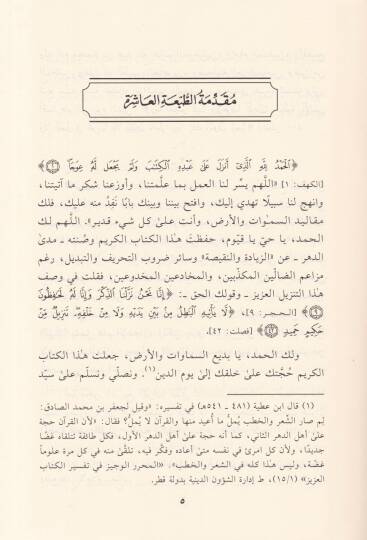 مُقَدِّمَةُ الطَّبْعَةِ العَاشِرَةِ
﴿الْحَمْدُ لِلَّهِ الَّذِي أَنزَلَ عَلَىٰ عَبْدِهِ الْكِتَابَ وَلَمْ يَجْعَل لَّهُ عِوَجًا ۝١﴾
[الكهف: ١] «اللّهم يسِّر لنا العمل بما علَّمتنا، وأوزعنا شكر ما آتيتنا،
وانهج لنا سبيلًا تهدي إليك، وافتح بيننا وبينك بابًا نَفِدُ منه عليك، فلك
مقاليد السمٰوات والأرض، وأنت علىٰ كل شيء قدير». اللّهم لك
الحمد، يا حيّ يا قيّوم، حفظتَ هٰذا الكتاب الكريم وصُنته ـ مدىٰ
الدهر ـ عن «الزيادة والنقيصة» وسائر ضروب التحريف والتبديل، رغم
مزاعم الضالّين المكذّبين، والمخادعين المخدوعين، فقلت في وصف
هٰذا التنزيل العزيز ـ وقولك الحق ـ: ﴿إِنَّا نَحْنُ نَزَّلْنَا الذِّكْرَ وَإِنَّا لَهُ لَحَافِظُونَ
۝٩﴾ [الحجر: ٩]، ﴿لَّا يَأْتِيهِ الْبَاطِلُ مِن بَيْنِ يَدَيْهِ وَلَا مِنْ خَلْفِهِ تَنزِيلٌ مِّنْ
حَكِيمٍ حَمِيدٍ ۝٤٢﴾ [فصلت: ٤٢].
ولك الحمد، يا بديع السماوات والأرض، جعلت هٰذا الكتاب
الكريم حُجّتك علىٰ خلقك إلىٰ يوم الدين(١). ونصلّي ونسلّم علىٰ سيّد
(١) قال ابن عطية (٤٨١ ـ ٥٤١هـ) في تفسيره: «وقيل لجعفر بن محمد الصادق:
لِمَ صار الشِّعر والخطب يُملُّ ما أُعيد منها والقرآن لا يُملُّ؟ فقال: «لأن القرآن حجة
علىٰ أهل الدهر الثاني، كما أنه حجة علىٰ أهل الدهر الأول، فكل طائفة تتلقاه غضًا
جديدًا، ولأن كل امرئ في نفسه متىٰ أعاده وفكّر فيه، تلقّىٰ منه في كل مرة علوماً
غضّة، وليس هٰذا كله في الشعر والخطب». «المحرر الوجيز في تفسير الكتاب
العزيز» (١/ ١٥)، ط إدارة الشؤون الدينية بدولة قطر.
٥